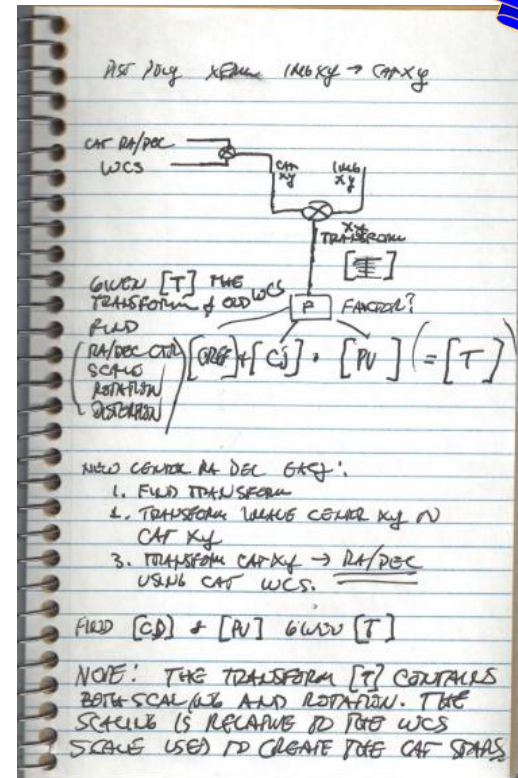 XFORM IMG XY → CAT XY
CAT RA/DEC
WCS
CAT XY
IMG XY
XY
TRANSFORM
[T]
GIVEN [T] THE
TRANSFORM & OLD WCS
P FACTOR?
FIND
RA/DEC CTR
SCALE
ROTATION
DISTORTION
[CREF] + [CD] · [PV] (= [T])
NEW CENTER RA DEC EASY:
1. FIND TRANSFORM
2. TRANSFORM IMAGE CENTER XY TO
CAT XY
3. TRANSFORM CAT XY → RA/DEC
USING CAT WCS.
FIND [CD] & [PV] GIVEN [T]
NOTE: THE TRANSFORM [T] CONTAINS
BOTH SCALING AND ROTATION. THE
SCALING IS RELATIVE TO THE WCS
SCALE USED TO CREATE THE CAT STARS